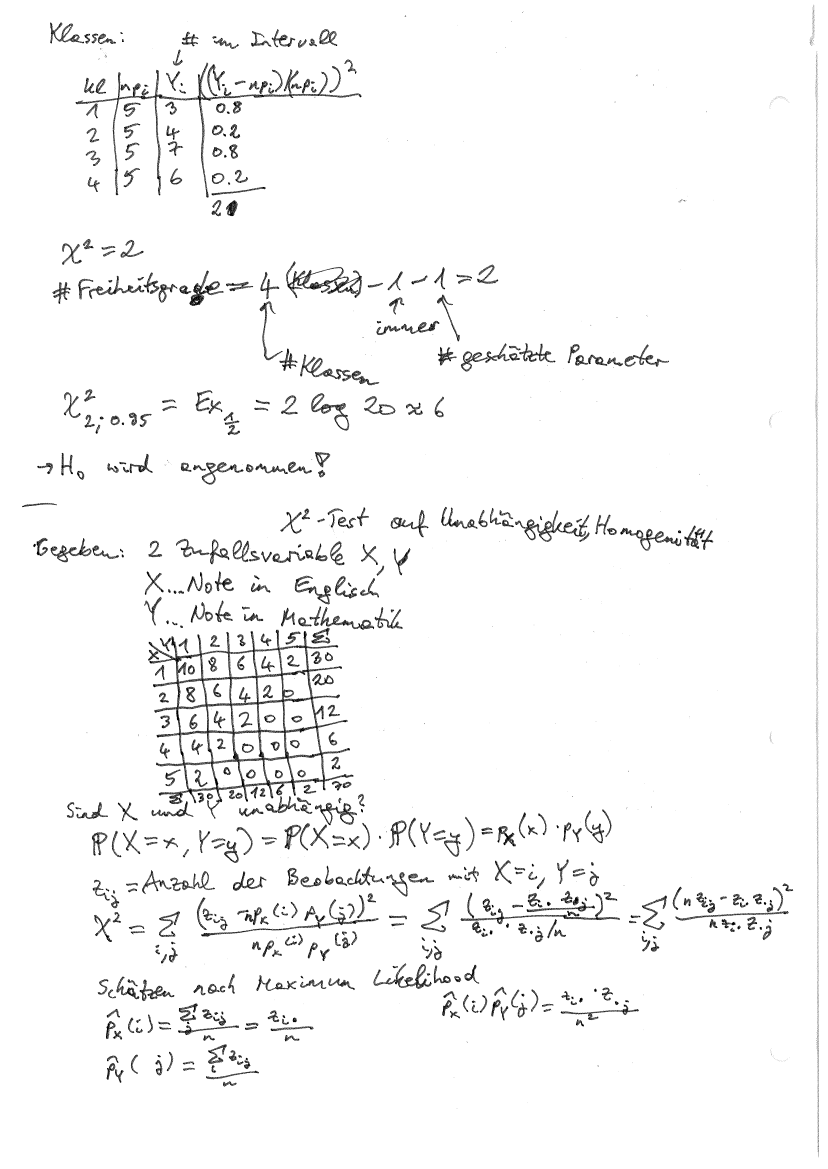 Klassen: # im Intervall
↓
kl | npᵢ | Yᵢ | ((Yᵢ - npᵢ)/(npᵢ))²
1 | 5 | 3 | 0.8
2 | 5 | 4 | 0.2
3 | 5 | 7 | 0.8
4 | 5 | 6 | 0.2
2
χ² = 2
# Freiheitsgrade = 4 - 1 - 1 = 2
immer
# geschätzte Parameter
# Klassen
χ²₂;₀.₉₅ = Ex_{1/2} = 2 log 20 ≈ 6
→ H₀ wird angenommen!
χ²-Test auf Unabhängigkeit, Homogenität
Gegeben: 2 Zufallsvariable X, Y
X... Note in Englisch
Y... Note in Mathematik
X\Y | 1 | 2 | 3 | 4 | 5 | Σ
1 | 10 | 8 | 6 | 4 | 2 | 30
2 | 8 | 6 | 4 | 2 | 0 | 20
3 | 6 | 4 | 2 | 0 | 0 | 12
4 | 4 | 2 | 0 | 0 | 0 | 6
5 | 2 | 0 | 0 | 0 | 0 | 2
Σ | 30 | 20 | 12 | 6 | 2 | 70
Sind X und Y unabhängig?
ℙ(X=x, Y=y) = ℙ(X=x) · ℙ(Y=y) = p_X(x) · p_Y(y)
z_ij = Anzahl der Beobachtungen mit X=i, Y=j
χ² = Σ_{i,j} (z_ij - np_X(i) p_Y(j))² / (np_X(i) p_Y(j)) = Σ_{i,j} (z_ij - z_i. z_.j / n)² / (z_i. · z_.j/n) = Σ_{i,j} (n z_ij - z_i. z_.j)² / (n z_i. z_.j)
Schätzen nach Maximum Likelihood
p̂_X(i) = Σ_j z_ij / n = z_i. / n
p̂_X(i) p̂_Y(j) = z_i. · z_.j / n²
p̂_Y(j) = Σ_i z_ij / n